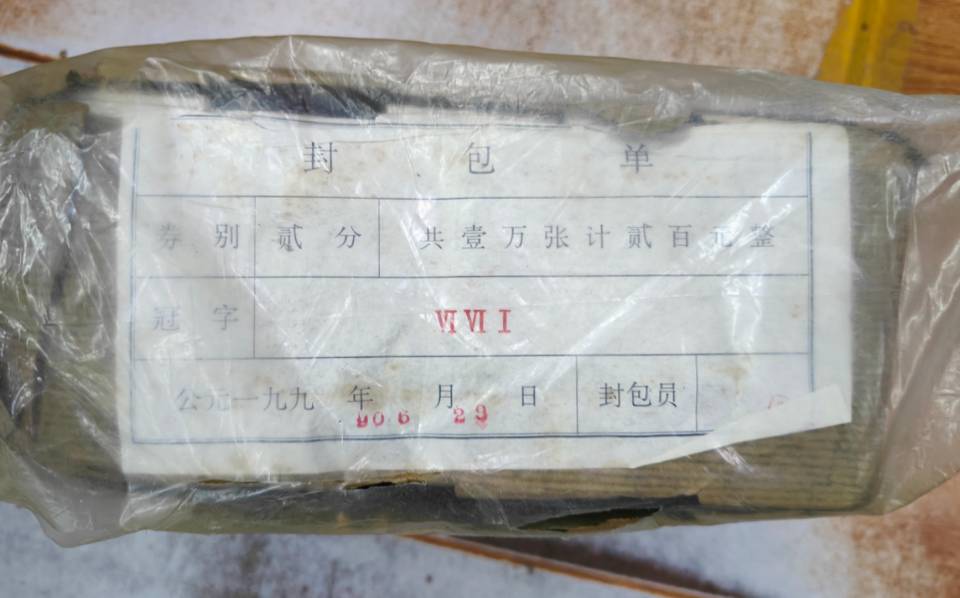 封 包 单
券 别 贰 分 共 壹 万 张 计 贰 百 元 整
冠 字 ⅥⅦⅠ
公元一九九 年 月 日 封包员
90 6 29